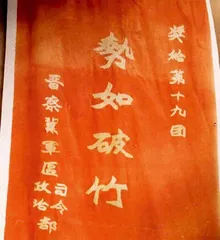 奖给第十九团
勢如破竹
晋察冀軍區司令
政治部